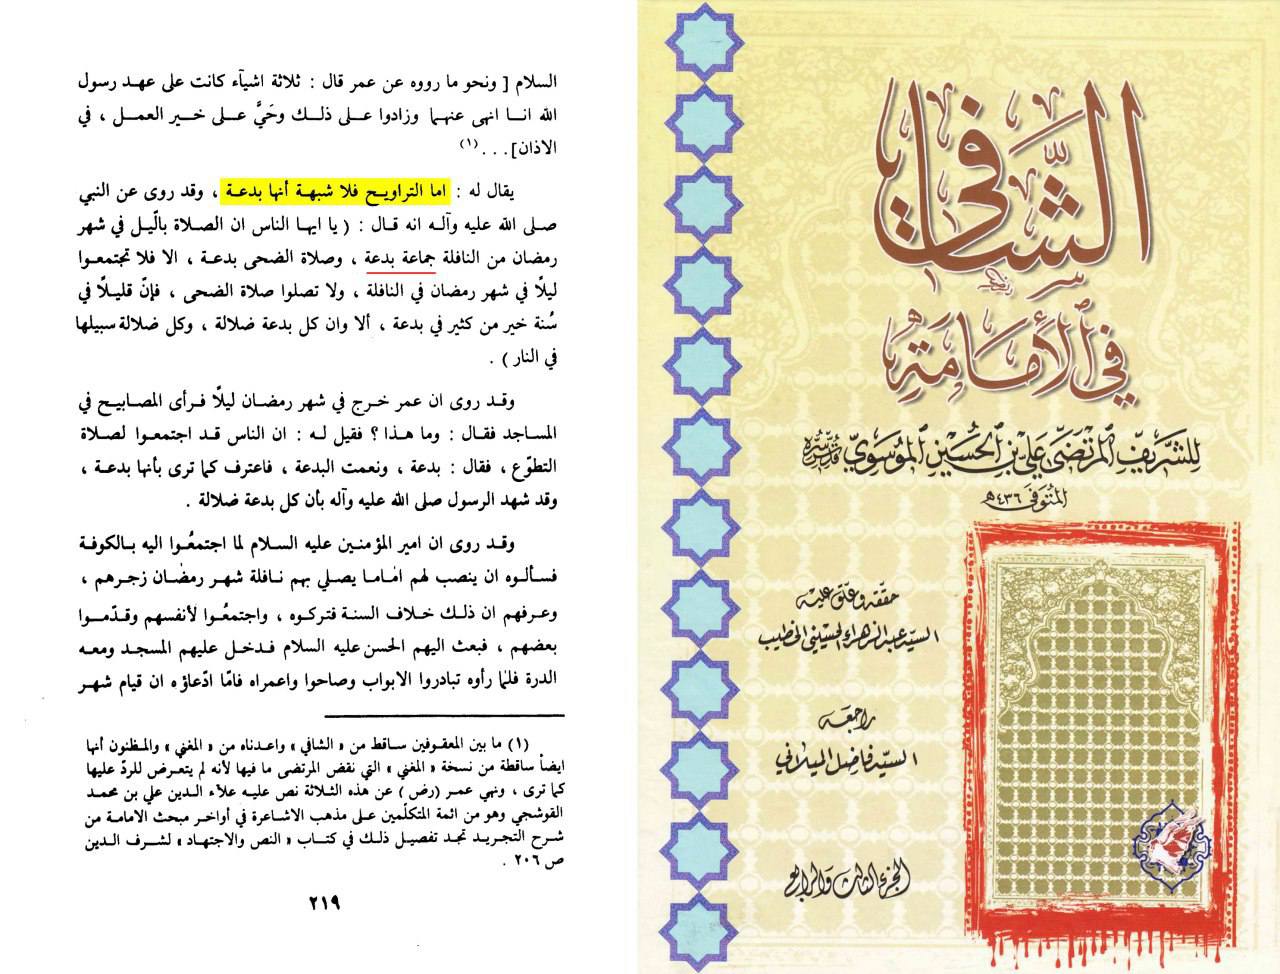 السلام [ ونحو ما رووه عن عمر قال : ثلاثة اشيآء كانت على عهد رسول
الله انا انهى عنهما وزادوا على ذلك وحَيَّ على خير العمل ، في
الاذان] . . . (١)
يقال له : اما التراويح فلا شبهة أنها بدعة ، وقد روى عن النبي
صلى الله عليه وآله انه قال : ( يا ايها الناس ان الصلاة بالّيل في شهر
رمضان من النافلة جماعة بدعة ، وصلاة الضحى بدعة ، الا فلا تجتمعوا
ليلًا في شهر رمضان في النافلة ، ولا تصلوا صلاة الضحى ، فإنّ قليلًا في
سُنة خير من كثير في بدعة ، ألا وان كل بدعة ضلالة ، وكل ضلالة سبيلها
في النار ) .
وقد روى ان عمر خرج في شهر رمضان ليلًا فرأى المصابيح في
المساجد فقال : وما هذا ؟ فقيل له : ان الناس قد اجتمعوا لصلاة
التطوّع ، فقال : بدعة ، ونعمت البدعة ، فاعترف كما ترى بأنها بدعة ،
وقد شهد الرسول صلى الله عليه وآله بأن كل بدعة ضلالة .
وقد روى ان امير المؤمنين عليه السلام لما اجتمعُوا اليه بالكوفة
فسألوه ان ينصب لهم امٰاما يصلي بهم نافلة شهر رمضٰان زجرهم ،
وعرفهم ان ذلك خلاف السنة فتركوه ، واجتمعُوا لأنفسهم وقدّموا
بعضهم ، فبعث اليهم الحسن عليه السلام فدخل عليهم المسجد ومعه
الدرة فلمٰا رأوه تبادروا الابواب وصاحوا واعمراه فامّا ادّعاؤه ان قيام شهر
(١) ما بين المعقوفين ساقط من « الشافي » واعدناه من « المغني » والمظنون أنها
ايضاً ساقطة من نسخة « المغني » التي نقض المرتضى ما فيها لأنه لم يتعرض للردّ عليها
كما ترى ، ونهي عمر (رض ) عن هذه الثلاثة نص عليه علآء الدين علي بن محمد
القوشجي وهو من ائمة المتكلّمين على مذهب الاشاعرة في أواخر مبحث الامامة من
شرح التجريد تجد تفصيل ذلك في كتاب « النص والاجتهاد » لشرف الدين
ص ٢٠٦ .
٢١٩
الشَّافي
في الأمامَةِ
للشريف المرتضى علي بن الحسين الموسوي قدس سره
المتوفى ٤٣٦ هـ
حققه وعلق عليه
السيد عبد الزهراء الحسيني الخطيب
راجعه
السيد فاضل الميلاني
الجزء الثالث والرابع